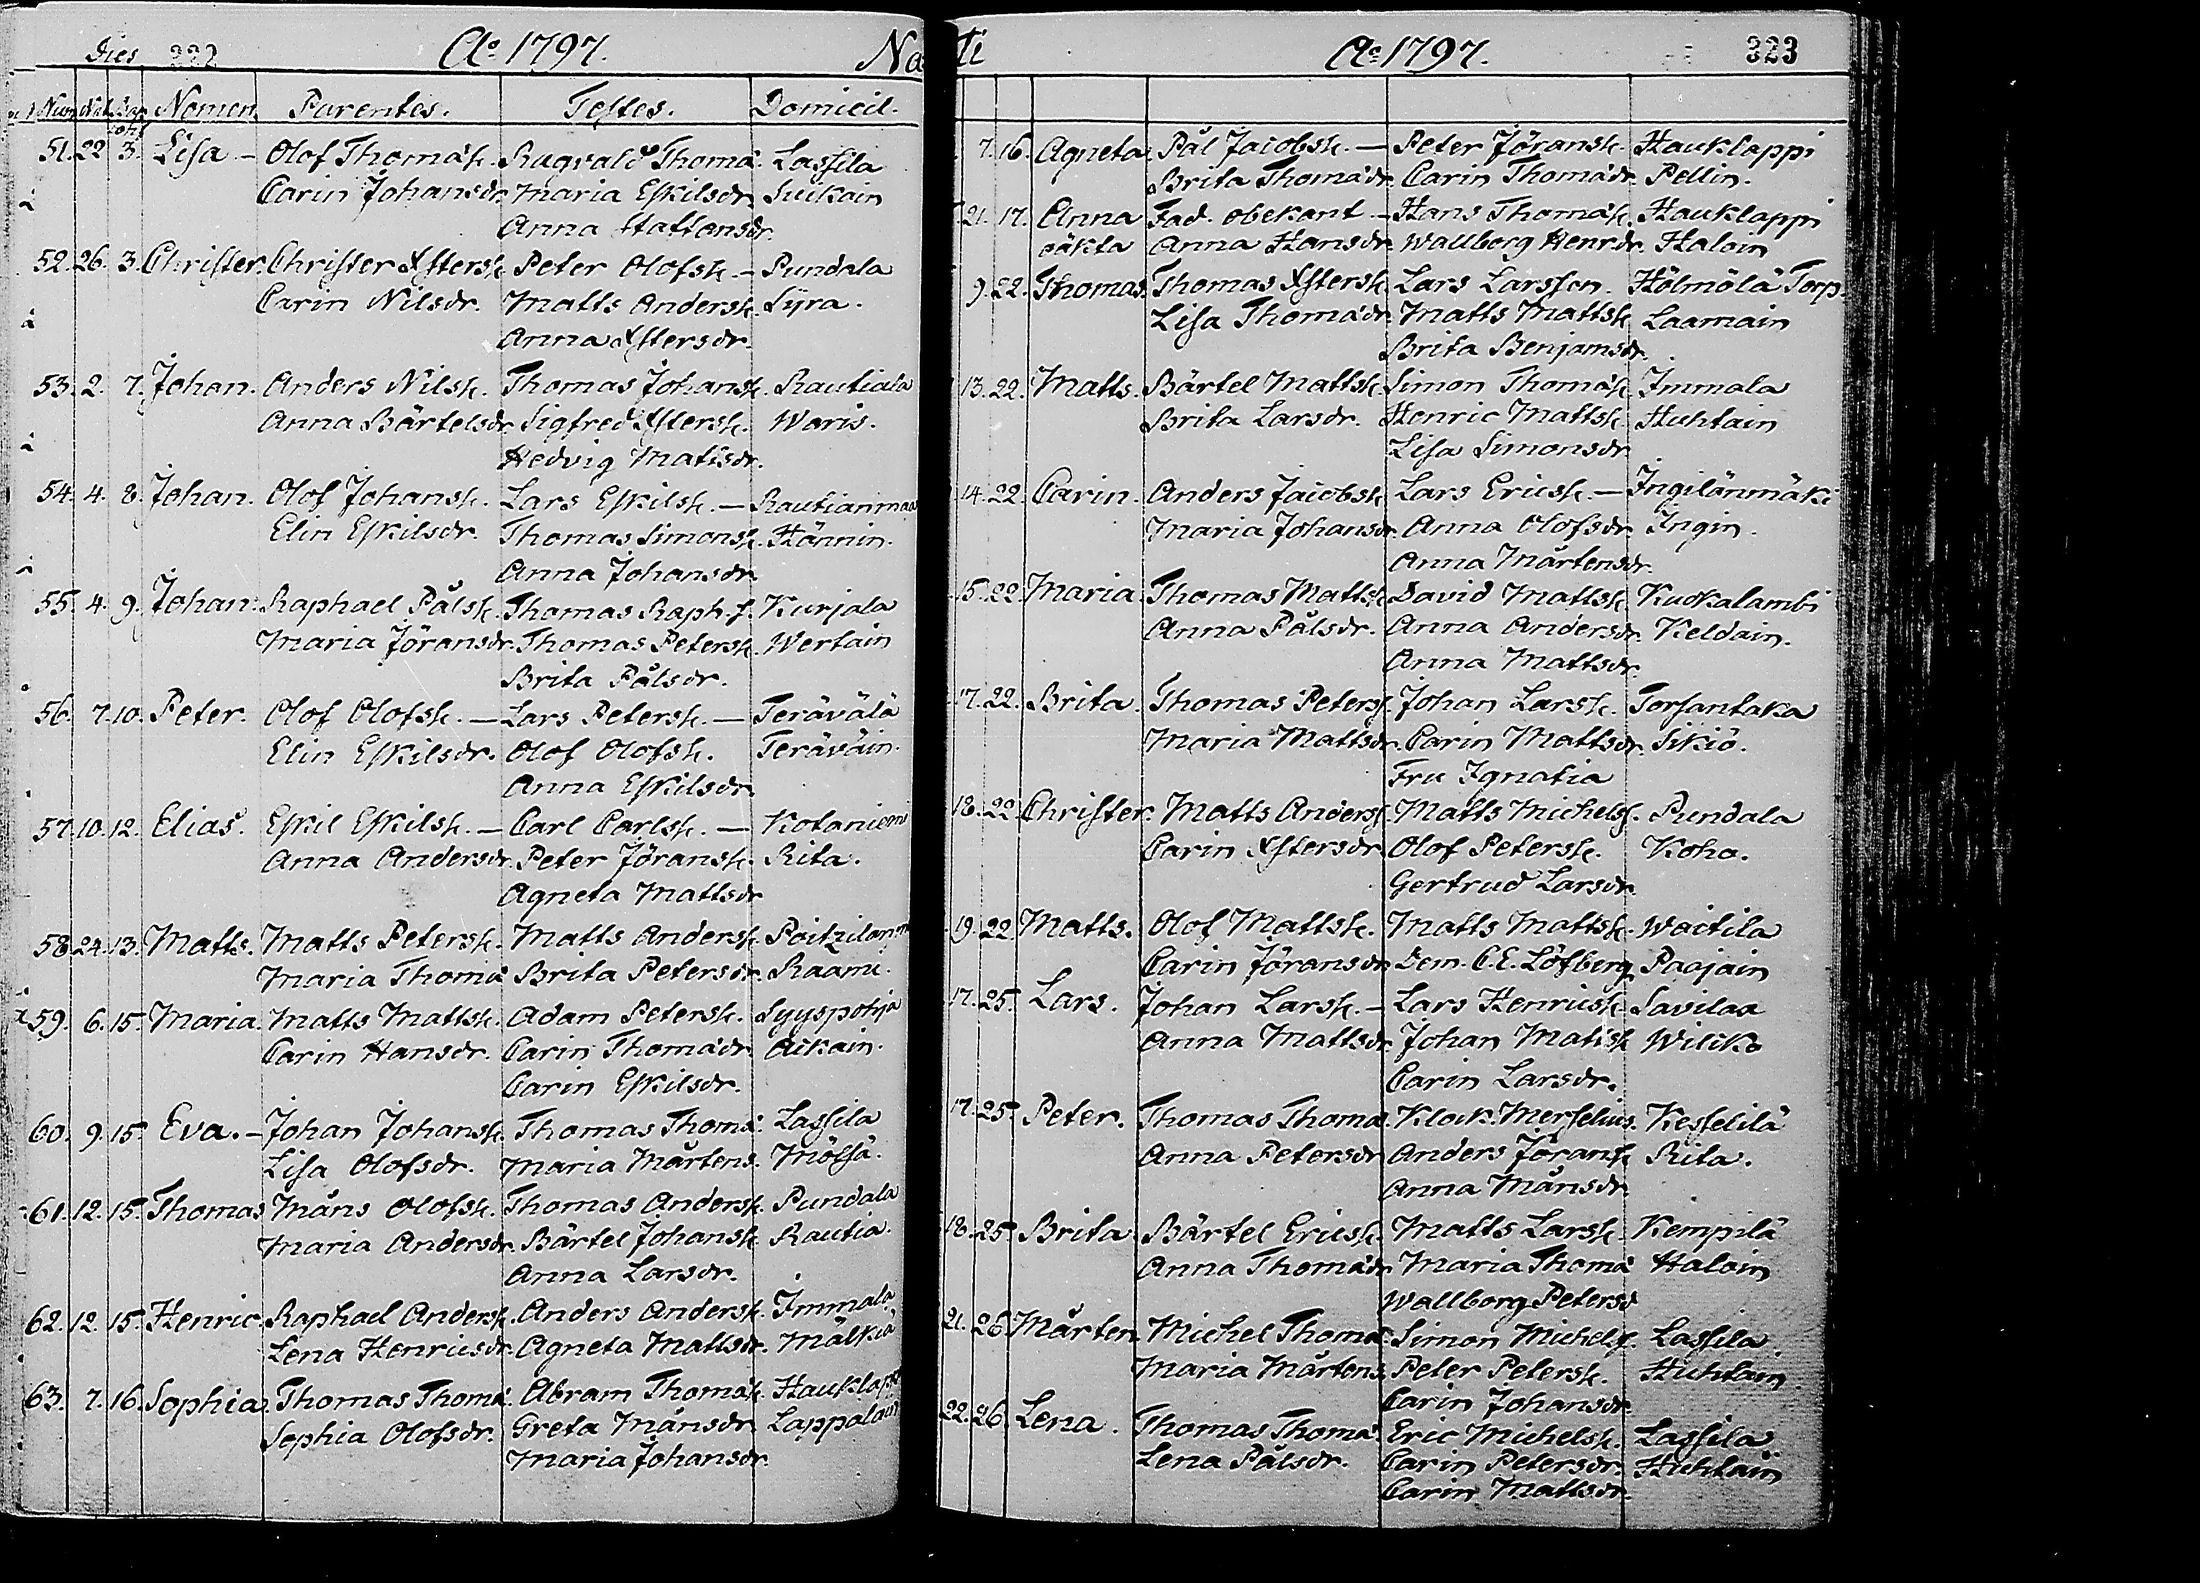 Dies 322 Ao 1797. Na
Num Nat. Bap Nomen. Parentes. Testes. Domicil.
51. 22 3. Lisa - Olof Thomæsk. Ragvald Thomæ. Lassila
Carin Johansdr. Maria Eskilsdr. Suikain
Anna Staffansdr.
52. 26. 3. Christer. Christer Xstersk. Peter Olofsk - Pundala
Carin Nilsdr. Matts Andersk. Syra.
Anna Xstersdr.
53. 2. 7. Johan. Anders Nilsk. Thomas Johansk. Rautiala
Anna Bärtelsdr. Sigfred Xstersk. Waris.
Hedvig Matisdr.
54. 4. 8. Johan. Olof Johansk. Lars Eskilsk. - Rautianmaa
Elin Eskilsdr. Thomas Simonsk. Hännin.
Anna Johansdr.
55. 4. 9. Johan. Raphael Pålsk. Thomas Raph. s. Kurjala
Maria Jöransdr. Thomas Petersk. Wertain
Brita Pålsdr.
56. 7. 10. Peter. Olof Olofsk. - Lars Petersk. - Terävälä
Elin Eskilsdr. Olof Olofsk. Teräväin.
Anna Eskilsdr.
57. 10. 12. Elias. Eskil Eskilsk. - Carl Carlsk. - Kotaniemi
Anna Andersdr. Peter Jöransk. Rita.
Agneta Mattsdr
58. 24. 13. Matts. Matts Petersk. Matts Andersk.
Maria Thomæ Brita Petersdr. Raami.
59. 6. 15. Maria. Matts Mattsk. Adam Petersk. Syyspohja
Carin Hansdr. Carin Thomædr. Aikain.
Carin Eskilsdr.
60. 9. 15. Eva. - Johan Johansk. Thomas Thomæ. Lassila
Lisa Olofsdr. Maria Mårtens. Mössä.
61. 12. 15. Thomas Måns Olofsk. Thomas Andersk. Pundala
Maria Andersdr. Bärtel Johansk. Rautia.
Anna Larsdr.
62. 12. 15. Henric. Raphael Andersk. Anders Andersk. Immala
Lena Henricsdr. Agneta Mattsdr. Mälkiä
63. 7. 16. Sophia. Thomas Thomæ. Abram Thomæsk. Hauklappi
Sophia Olofsdr. Greta Månsdr. Lappalain
Maria Johansdr.
ti Ao 1797. 323
7. 16. Agneta Pål Jacobsk. - Peter Jöransk. Hauklappi
Brita Thomædr. Carin Thomædr. Pellin.
21. 17. Anna Fad. obekant - Hans Thomæsk. Hauklappi
oäkta Anna Hansdr. Wallborg Henrdr. Haloin
9. 22. Thomas. Thomas Xstersk. Lars Larsson. Hölmölä Torp.
Lisa Thomædr. Matts Mattsk. Laamain
Brita Benjamsdr.
13. 22. Matts. Bärtel Mattsk. Simon Thomæsk. Immala
Brita Larsdr. Henric Mattsk. Huhtain
Lisa Simonsdr
14. 22. Carin. Anders Jacobsk. Lars Ericsk. - Ingilänmäki
Maria Johansdr. Anna Olofsdr. Ingin.
Anna Mårtensdr.
15. 22. Maria. Thomas Mattsk. David Mattsk. Kuokalambi
Anna Pålsdr. Anna Andersdr. Keldain.
Anna Mattsdr.
17. 22. Brita. Thomas Petersk. Johan Larsk. Torsantaka
Maria Mattsdr. Carin Mattsdr. Sikiö.
Fru Ignatia
18. 22 Christer. Matts Andersk. Matts Michelsk. Pundala
Carin Xstersdr. Olof Petersk. Koho.
Gertrud Larsdr.
19. 22. Matts. Olof Mattsk. Matts Mattsk. Waitila
Carin Jöransdr. Dem. C. E. Löfberg Paajain
17. 25. Lars. Johan Larsk. - Lars Henricsk. Savilaa
Anna Mattsdr. Johan Matisk. Wiliko
Carin Larsdr.
17. 25. Peter. Thomas Thomæ. Klock. Merselius. Kesselilä
Anna Petersdr. Anders Jöransk. Rita.
Anna Månsdr.
18. 25 Brita. Bärtel Ericsk. Matts Larsk. Kempilä
Anna Thomædr. Maria Thomæ Haloin
Wallborg Petersd
21. 26 Mårten Michel Thomæ. Simon Michelsk. Lassila
Maria Mårtens. Peter Petersk. Huhtain
Carin Johansdr.
22. 26 Lena. Thomas Thomæ. Eric Michelsk. Lassila
Lena Pålsdr. Carin Petersdr. Huhtain
Carin Mattsdr.